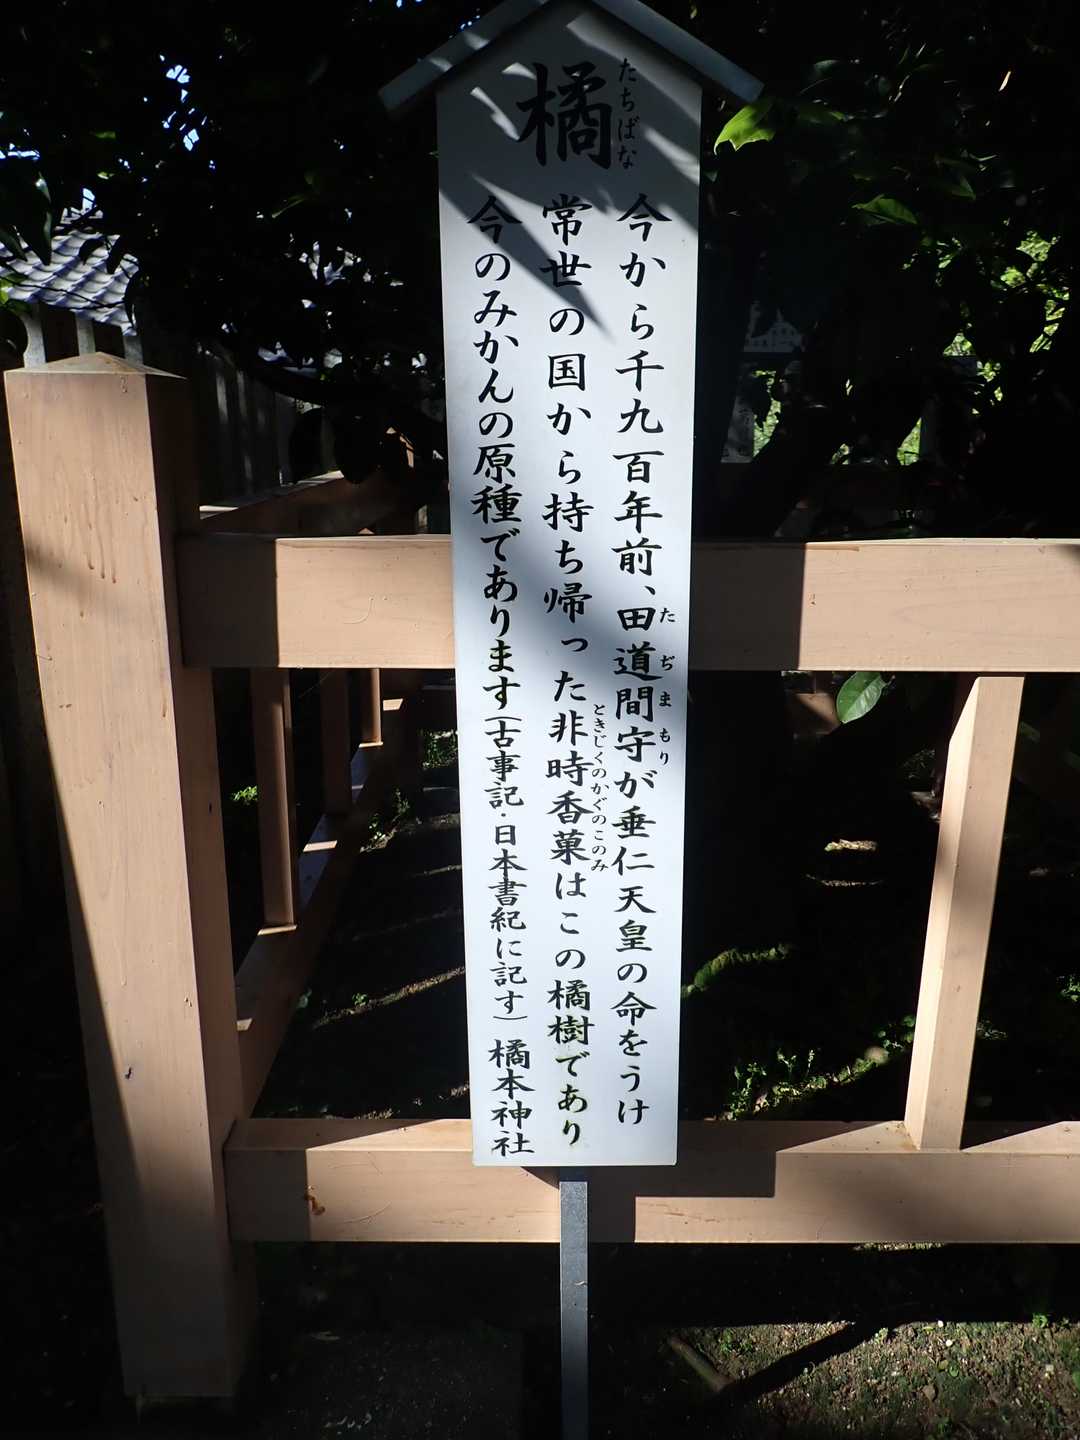 橘
たちばな
今から千九百年前、田道間守が垂仁天皇の命をうけ
たぢまもり
常世の国から持ち帰った非時香菓はこの橘樹であり
ときじくのかぐのこのみ
今のみかんの原種であります(古事記・日本書紀に記す) 橘本神社